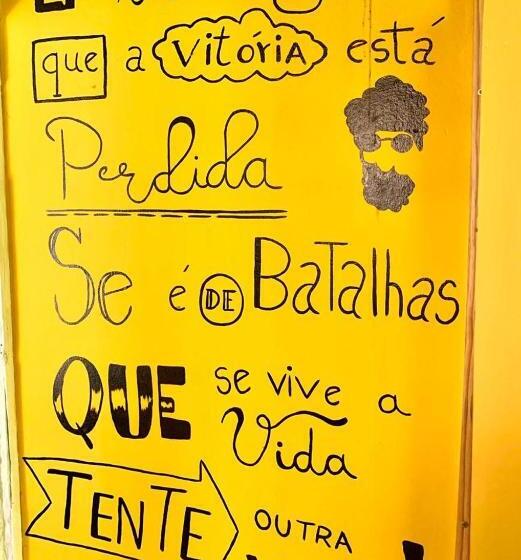 que a Vitória está
Perdida
Se é DE BaTalhas
QUE se vive a
Vida
TENTE OUTRA